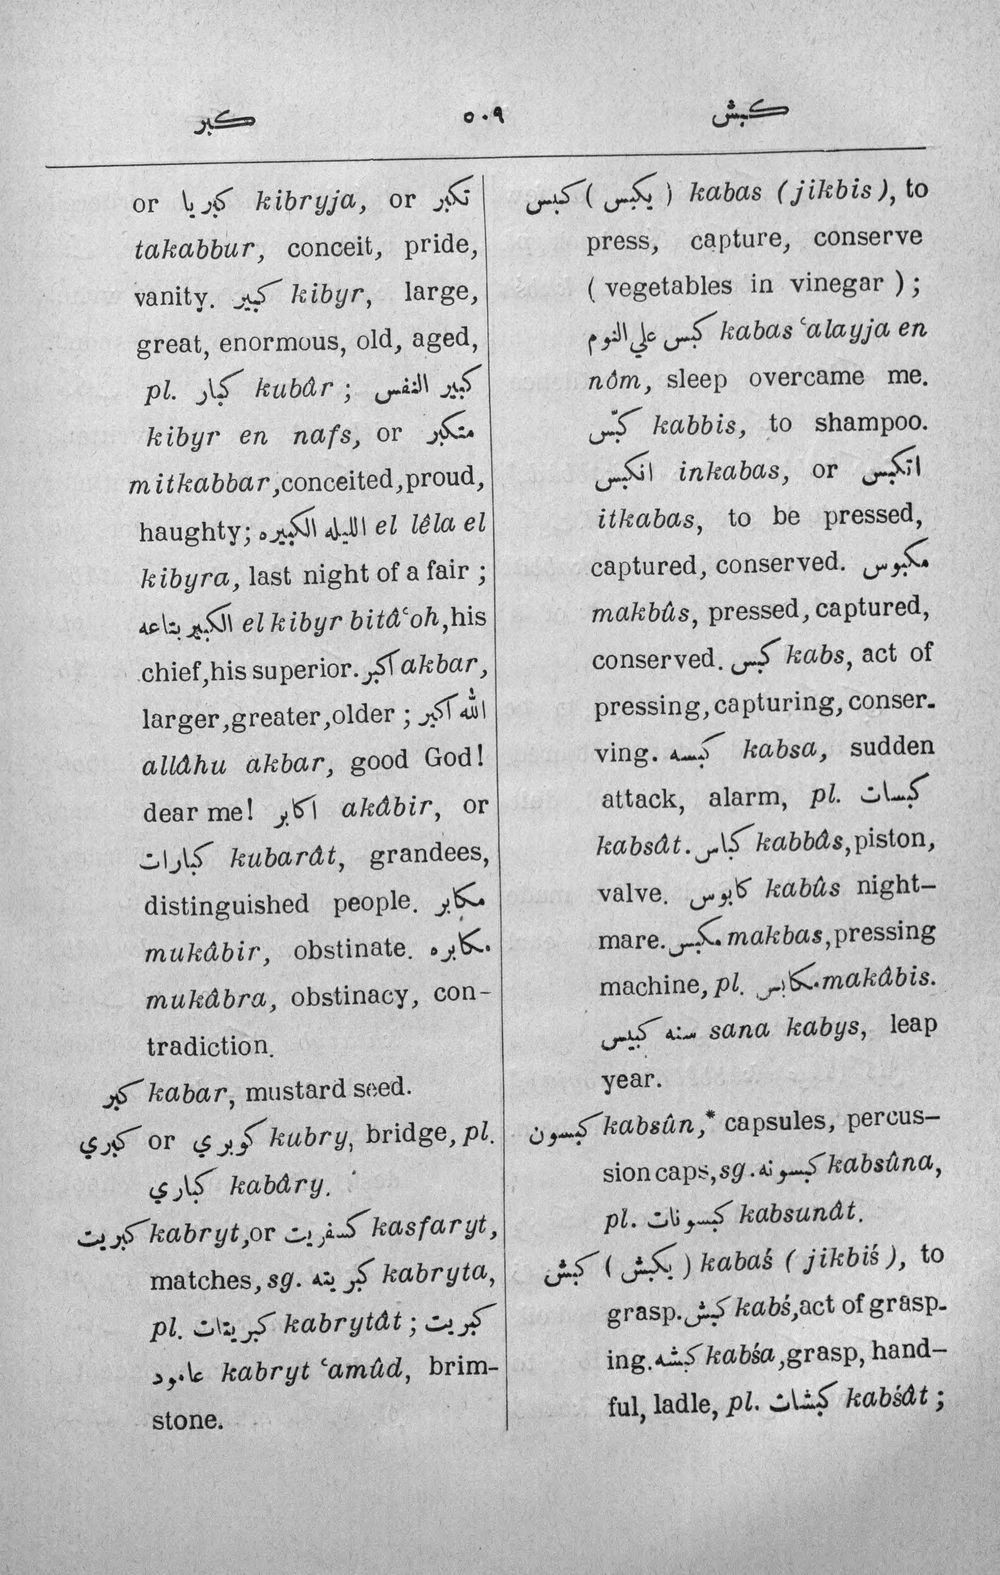 كبر ٥٠٩ كبش
or كبريا kibryja, or تكبر
takabbur, conceit, pride,
vanity. كبير kibyr, large,
great, enormous, old, aged,
pl. كبار kubâr ; كبير النفس
kibyr en nafs, or متكبر
mitkabbar, conceited, proud,
haughty; الليله الكبيره el lêla el
kibyra, last night of a fair ;
الكبير بتاعه el kibyr bitâʿoh, his
chief, his superior. اكبر akbar,
larger, greater, older ; الله اكبر
allâhu akbar, good God!
dear me! اكابر akâbir, or
كبارات kubarât, grandees,
distinguished people. مكابر
mukâbir, obstinate. مكابره
mukâbra, obstinacy, con-
tradiction.
كبر kabar, mustard seed.
كبري or كوبري kubry, bridge, pl.
كباري kabâry.
كبريت kabryt, or كسفريت kasfaryt,
matches, sg. كبريته kabryta,
pl. كبريتات kabrytât ; كبريت
عامود kabryt ʿamûd, brim-
stone.
كبس ( يكبس ) kabas (jikbis), to
press, capture, conserve
( vegetables in vinegar ) ;
كبس علي النوم kabas ʿalayja en
nôm, sleep overcame me.
كبّس kabbis, to shampoo.
انكبس inkabas, or اتكبس
itkabas, to be pressed,
captured, conserved. مكبوس
makbûs, pressed, captured,
conserved. كبس kabs, act of
pressing, capturing, conser-
ving. كبسه kabsa, sudden
attack, alarm, pl. كبسات
kabsât. كباس kabbâs, piston,
valve. كابوس kabûs night-
mare. مكبس makbas, pressing
machine, pl. مكابس makâbis.
سنه كبيس sana kabys, leap
year.
كبسون kabsûn,* capsules, percus-
sion caps, sg. كبسونه kabsûna,
pl. كبسونات kabsunât.
كبش ( يكبش ) kabaś ( jikbiś ), to
grasp. كبش kabś, act of grasp-
ing. كبشه kabśa, grasp, hand-
ful, ladle, pl. كبشات kabśât ;